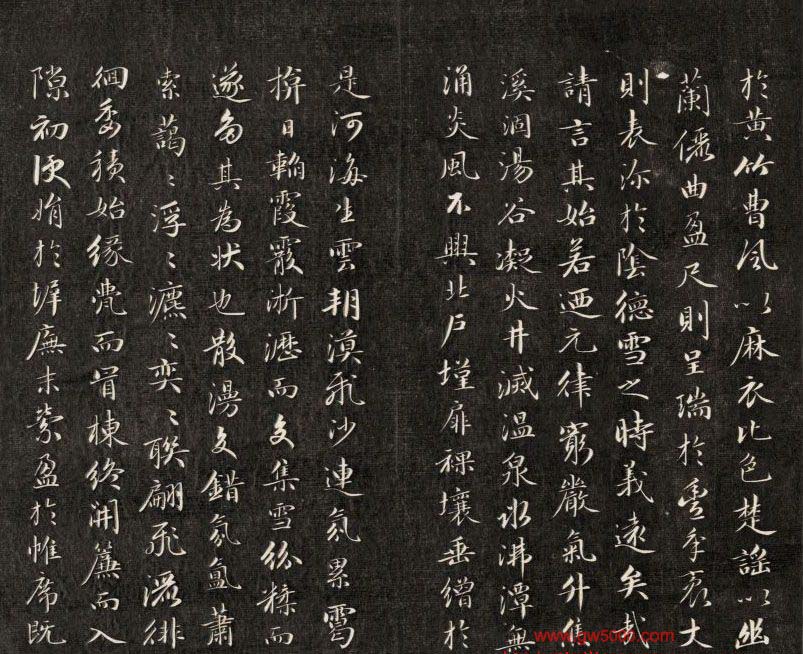 於黃竹曹風以麻衣比色楚謠以幽
蘭儷曲盈尺則呈瑞於豐年袤丈
則表沴於陰德雪之時義遠矣哉
請言其始若迺元律窮嚴氣升焦
溪涸湯谷凝火井滅溫泉冰沸潭無
涌炎風不興北戶墐扉裸壤垂繒於
是河海生雲朔漠飛沙連氛累靄
揜日韜霞霰淅瀝而交集雪紛糅而
遂多其為狀也散漫交錯氛氳蕭
索藹〻浮〻瀌〻奕〻聯翩飛灑徘
徊委積始緣甍而冒棟終開簾而入
隙初便娟於墀廡末縈盈於帷席既